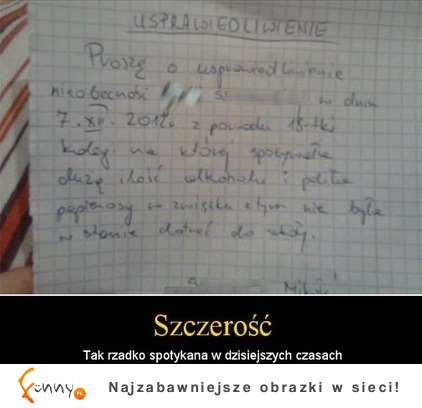 USPRAWIEDLIWIENIE
Proszę o usprawiedliwienie
nieobecności w dniu
7.XII.2012r z powodu 18-tki
kolegi na której spożywała
dużą ilość alkoholu i paliła
papierosy w związku z tym nie była
w stanie dotrzeć do szkoły.
Szczerość
Tak rzadko spotykana w dzisiejszych czasach
funny.PL
Najzabawniejsze obrazki w sieci!